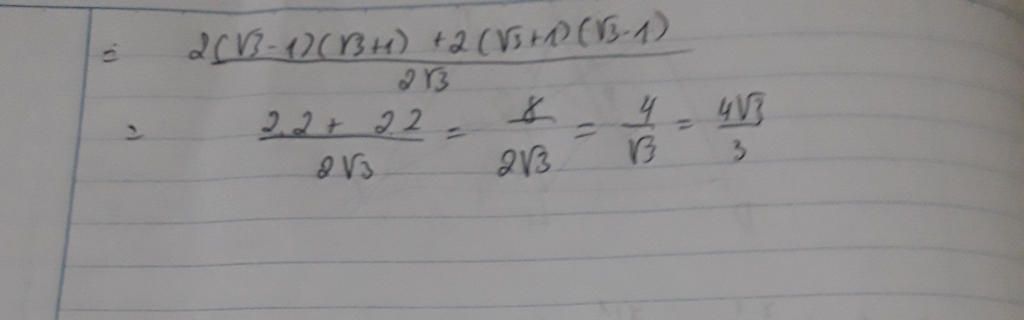 = 2(√3-1)(√3+1) + 2(√3+1)(√3-1) / 2√3
= 2.2 + 2.2 / 2√3 = 8 / 2√3 = 4 / √3 = 4√3 / 3